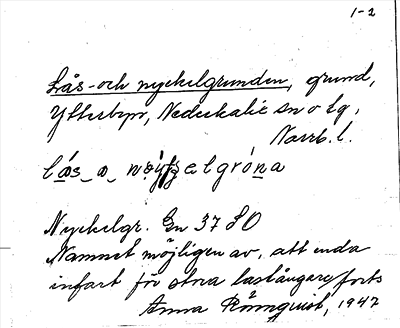 1-2
Lås-och nyckelgrunden, grund,
Ytterbyn, Nederkalix sn o tg,
Norrb. l.
Nyckelgr. En 37 80
Namnet möjligen av, att enda
infart för stora lastångare forts
Anna Rönnquist, 1947